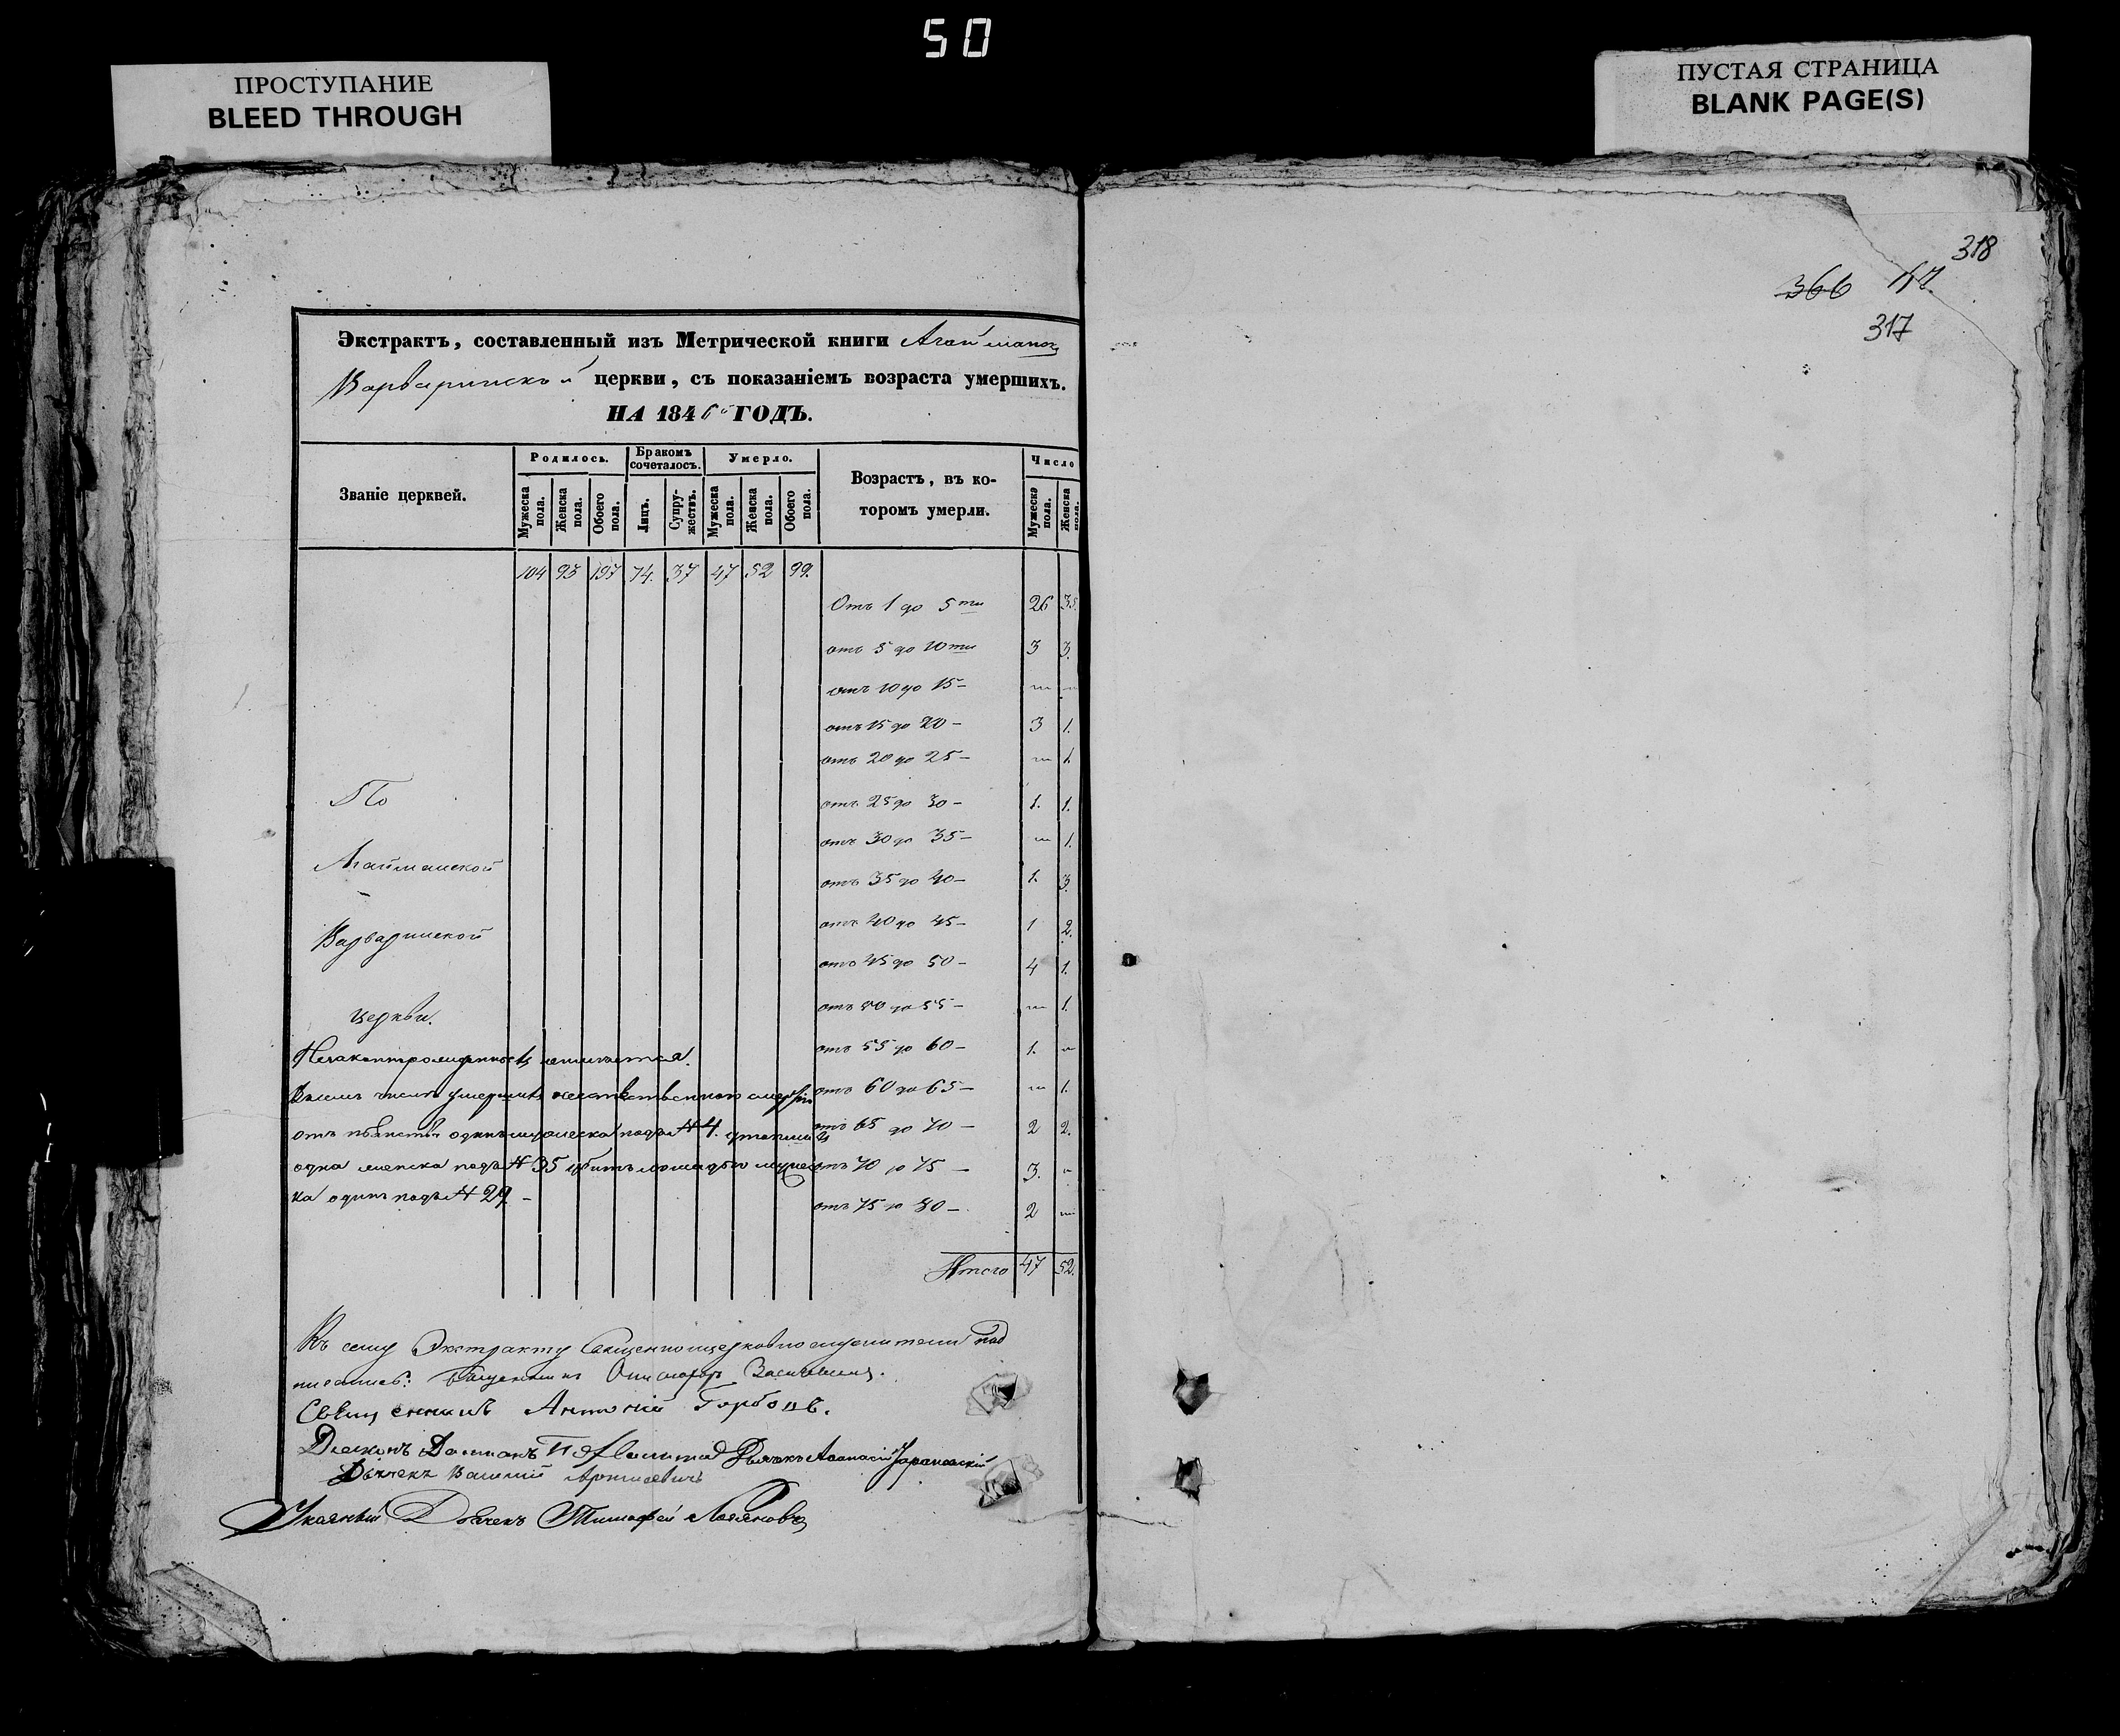 50
ПРОСТУПАНИЕ
BLEED THROUGH
ПУСТАЯ СТРАНИЦА
BLANK PAGE(S)
318
366
317
Экстрактъ, составленный изъ Метрической книги
Варваринской церкви, съ показаніемъ возраста умершихъ.
НА 1846 ГОДЪ.
Званіе церквей.
Родилось.
Мужеска пола.
Женска пола.
Обоего пола.
Бракомъ сочеталось.
Лицъ.
Супружествъ.
Умерло.
Мужеска пола.
Женска пола.
Обоего пола.
Возрастъ, въ которомъ умерли.
Число
Мужеска пола.
Женска пола.
104 93 197 74. 37 47 52 99.
Отъ 1 до 5ти 26 35.
отъ 5 до 10ти 3 3.
отъ 10 до 15 – „ „
отъ 15 до 20 – 3 1.
отъ 20 до 25 – „ 1.
По
отъ 25 до 30 – 1. 1.
отъ 30 до 35 – „ 1.
Агайманской
отъ 35 до 40 – 1. 3.
отъ 40 до 45 – 1 2.
Варваринской
отъ 45 до 50 – 4 1.
отъ 50 до 55 – „ 1.
церкви.
отъ 55 до 60 – 1. „
отъ 60 до 65 – „ 1.
отъ 65 до 70 – 2 2.
отъ 70 до 75 – 3. „
отъ 75 до 80 – 2 „
Итого 47 52.
числѣ умершихъ
одинъ подъ № 4.
одна женска подъ № 35 убитъ лошадью
ка одинъ подъ № 29. –
Къ сему Экстракту Священноцерковнослужители под
писались: Священникъ
Священникъ Антоній Горбовъ.
Діаконъ Даміанъ Дьячокъ Аѳанасій
Дьячекъ Василій
Указный Дьячекъ Тимофей